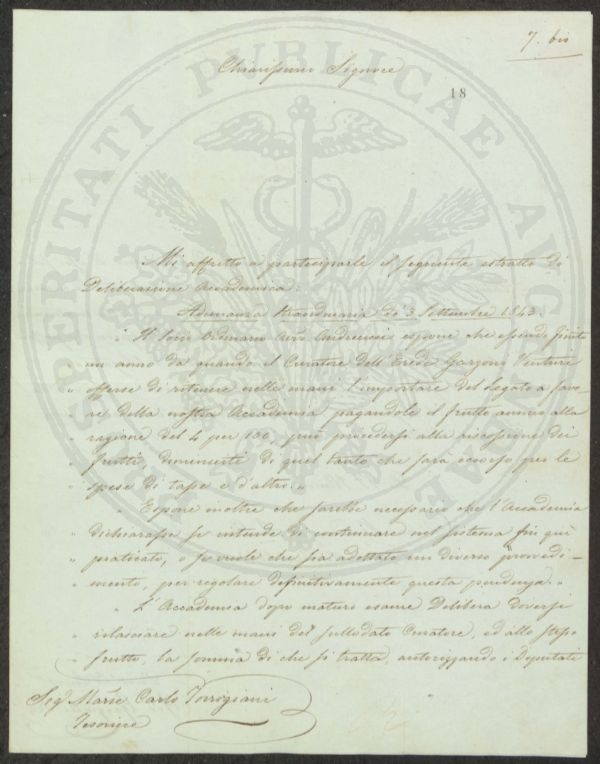 7. bis
Chiarissimo Signore
18
Mi affretto a parteciparle il seguente estratto di
Deliberazione Accademica:
Adunanza Straordinaria de' 3 Settembre 1843.
" Il Socio Ordinario Avv.º Andreucci espone che essendo finito
un anno da quando il Curatore dell'Erede Garzoni Venturi
" offerse di ritenere nelle mani l'importare del Legato a favo-
" re della nostra Accademia pagandole il frutto annuo alla
" ragione del 4 per 100, può procedersi alla riscossione dei
" frutti, diminuiti di quel tanto che sarà occorso per le
" spese di tasse e d'altro. "
" Espone inoltre che sarebbe necessario che l'Accademia
" dichiarasse se intende di continuare nel sistema fin qui
" praticato, o se vuole che sia adottato un diverso provvedi-
" mento, per regolare definitivamente questa pendenza. "
" L'Accademia dopo maturo esame Delibera doversi
" rilasciare nelle mani del sullodato Curatore, ed allo stesso
" frutto, la somma di che si tratta, autorizzando i Deputati
Sig.r March.se Carlo Torrigiani
Tesoriere
PROSPERITATI PUBLICAE AUGENDAE